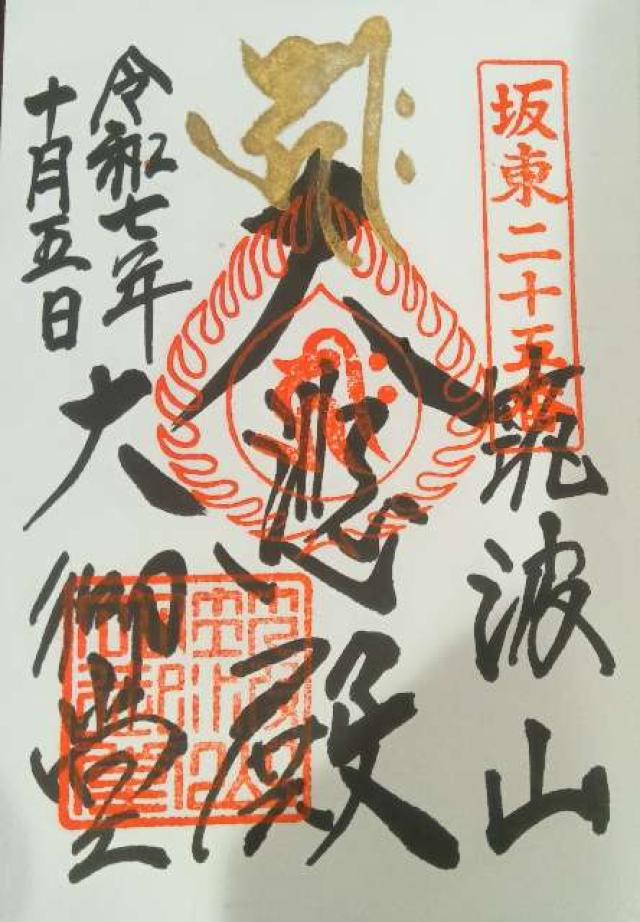 坂東二十五番
筑波山
大悲殿
大御堂
令和七年
十月五日